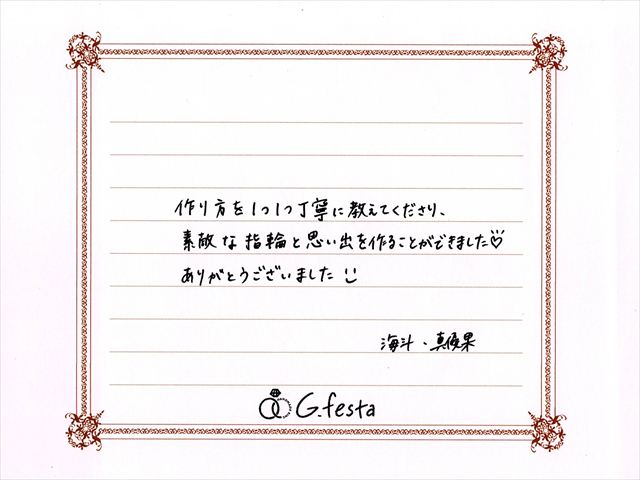 作り方を1つ1つ丁寧に教えてくださり、
素敵な指輪と思い出を作ることができました♡
ありがとうございました
海斗・真優果
G.festa